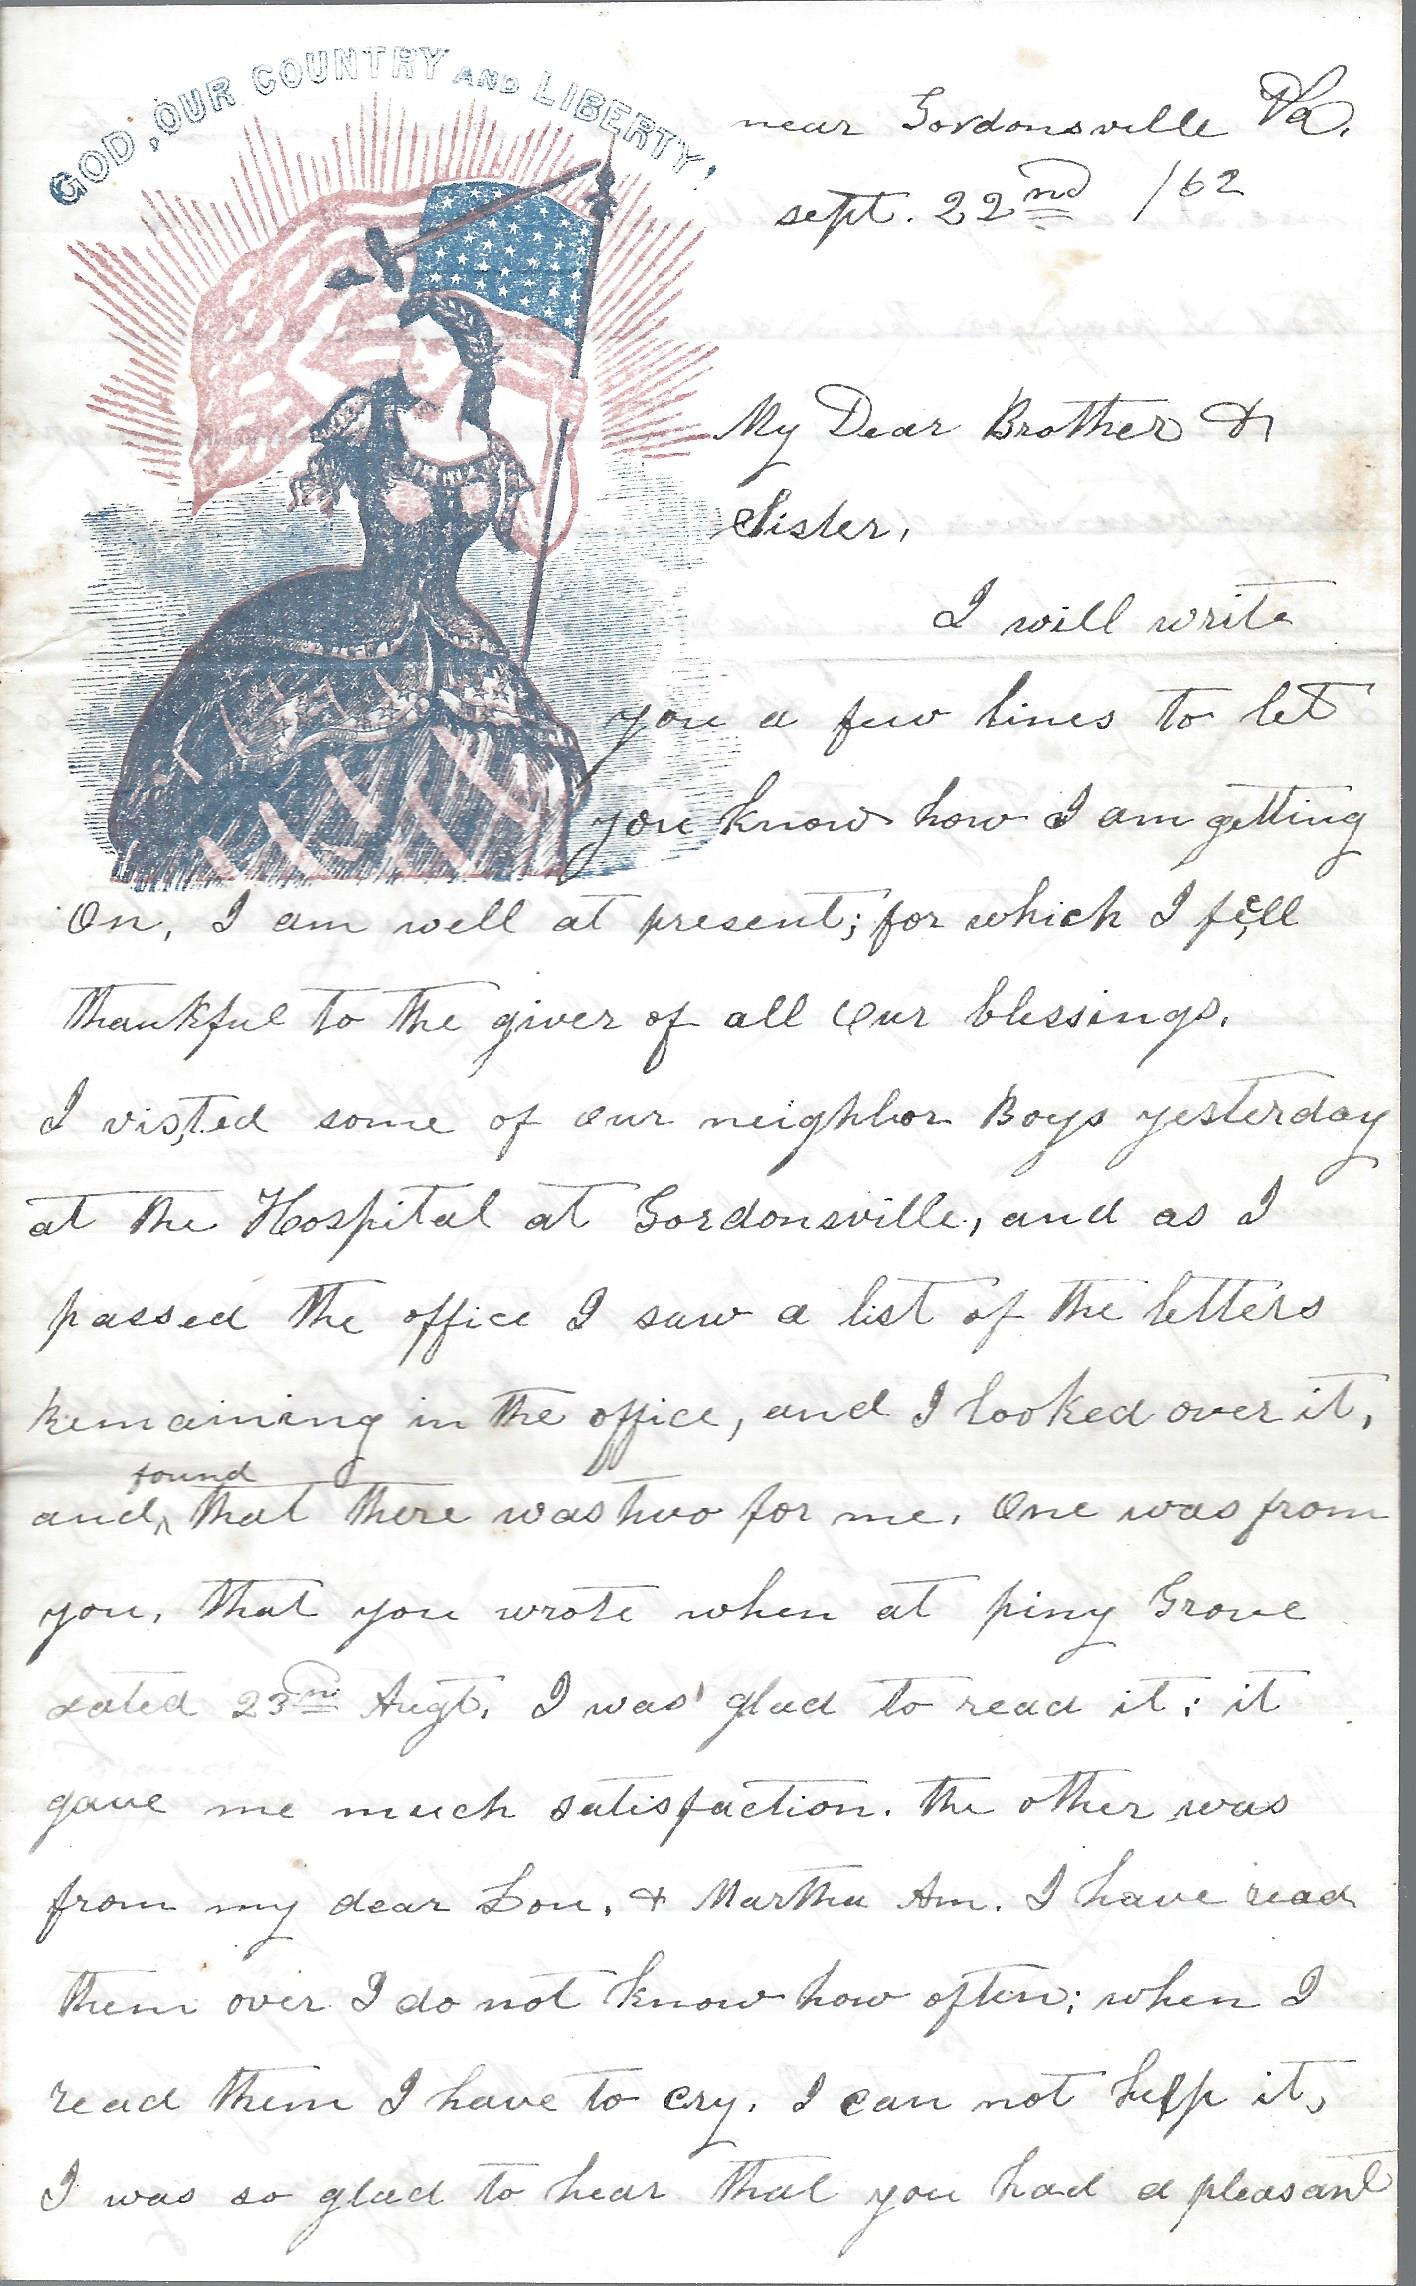 GOD, OUR COUNTRY AND LIBERTY!
near Gordonsville Va.
sept. 22nd /62
My Dear Brother &
Sister,
I will write
you a few lines to let
you know how I am getting
On, I am well at present; for which I feell
thankful to the giver of all our blessings.
I visited some of our neighbor Boys yesterday
at the Hospital at Gordonsville, and as I
passed the office I saw a list of the letters
remaining in the office, and I looked over it,
and found that there was two for me. One was from
you, that you wrote when at piny Grove
dated 23rd Augt. I was glad to read it; it
gave me much satisfaction. the other was
from my dear Lou. & Martha Am. I have read
them over I do not know how often; when I
read them I have to cry. I can not help it,
I was so glad to hear that you had a pleasant